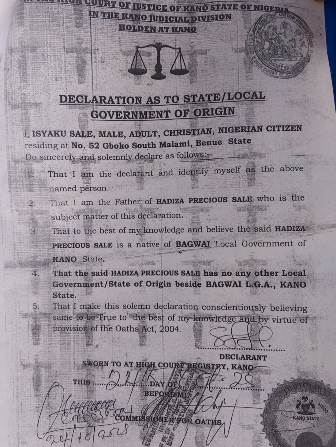 IN THE HIGH COURT OF JUSTICE OF KANO STATE OF NIGERIA
IN THE KANO JUDICIAL DIVISION
HOLDEN AT KANO
DECLARATION AS TO STATE/LOCAL
GOVERNMENT OF ORIGIN
I, ISYAKU SALE, MALE, ADULT, CHRISTIAN, NIGERIAN CITIZEN
residing at No. 52 Gboko South Malami, Benue State
Do sincerely and solemnly declare as follows:-
That I am the declarant and identify myself as the above
named person.
That I am the Father of HADIZA PRECIOUS SALE who is the
subject matter of this declaration.
That to the best of my knowledge and believe the said HADIZA
PRECIOUS SALE is a native of BAGWAI Local Government of
KANO State.
4. That the said HADIZA PRECIOUS SALE has no any other Local
Government/State of Origin beside BAGWAI L.G.A., KANO
State.
5. That I make this solemn declaration conscientiously believing
same to be True to the best of my knowledge and by virtue of
provision of the Oaths Act, 2004.
DECLARANT
SWORN TO AT HIGH COURT REGISTRY, KANO
THIS DAY OF
BEFORE
COMMISSIONER FOR OATHS
KANO STATE